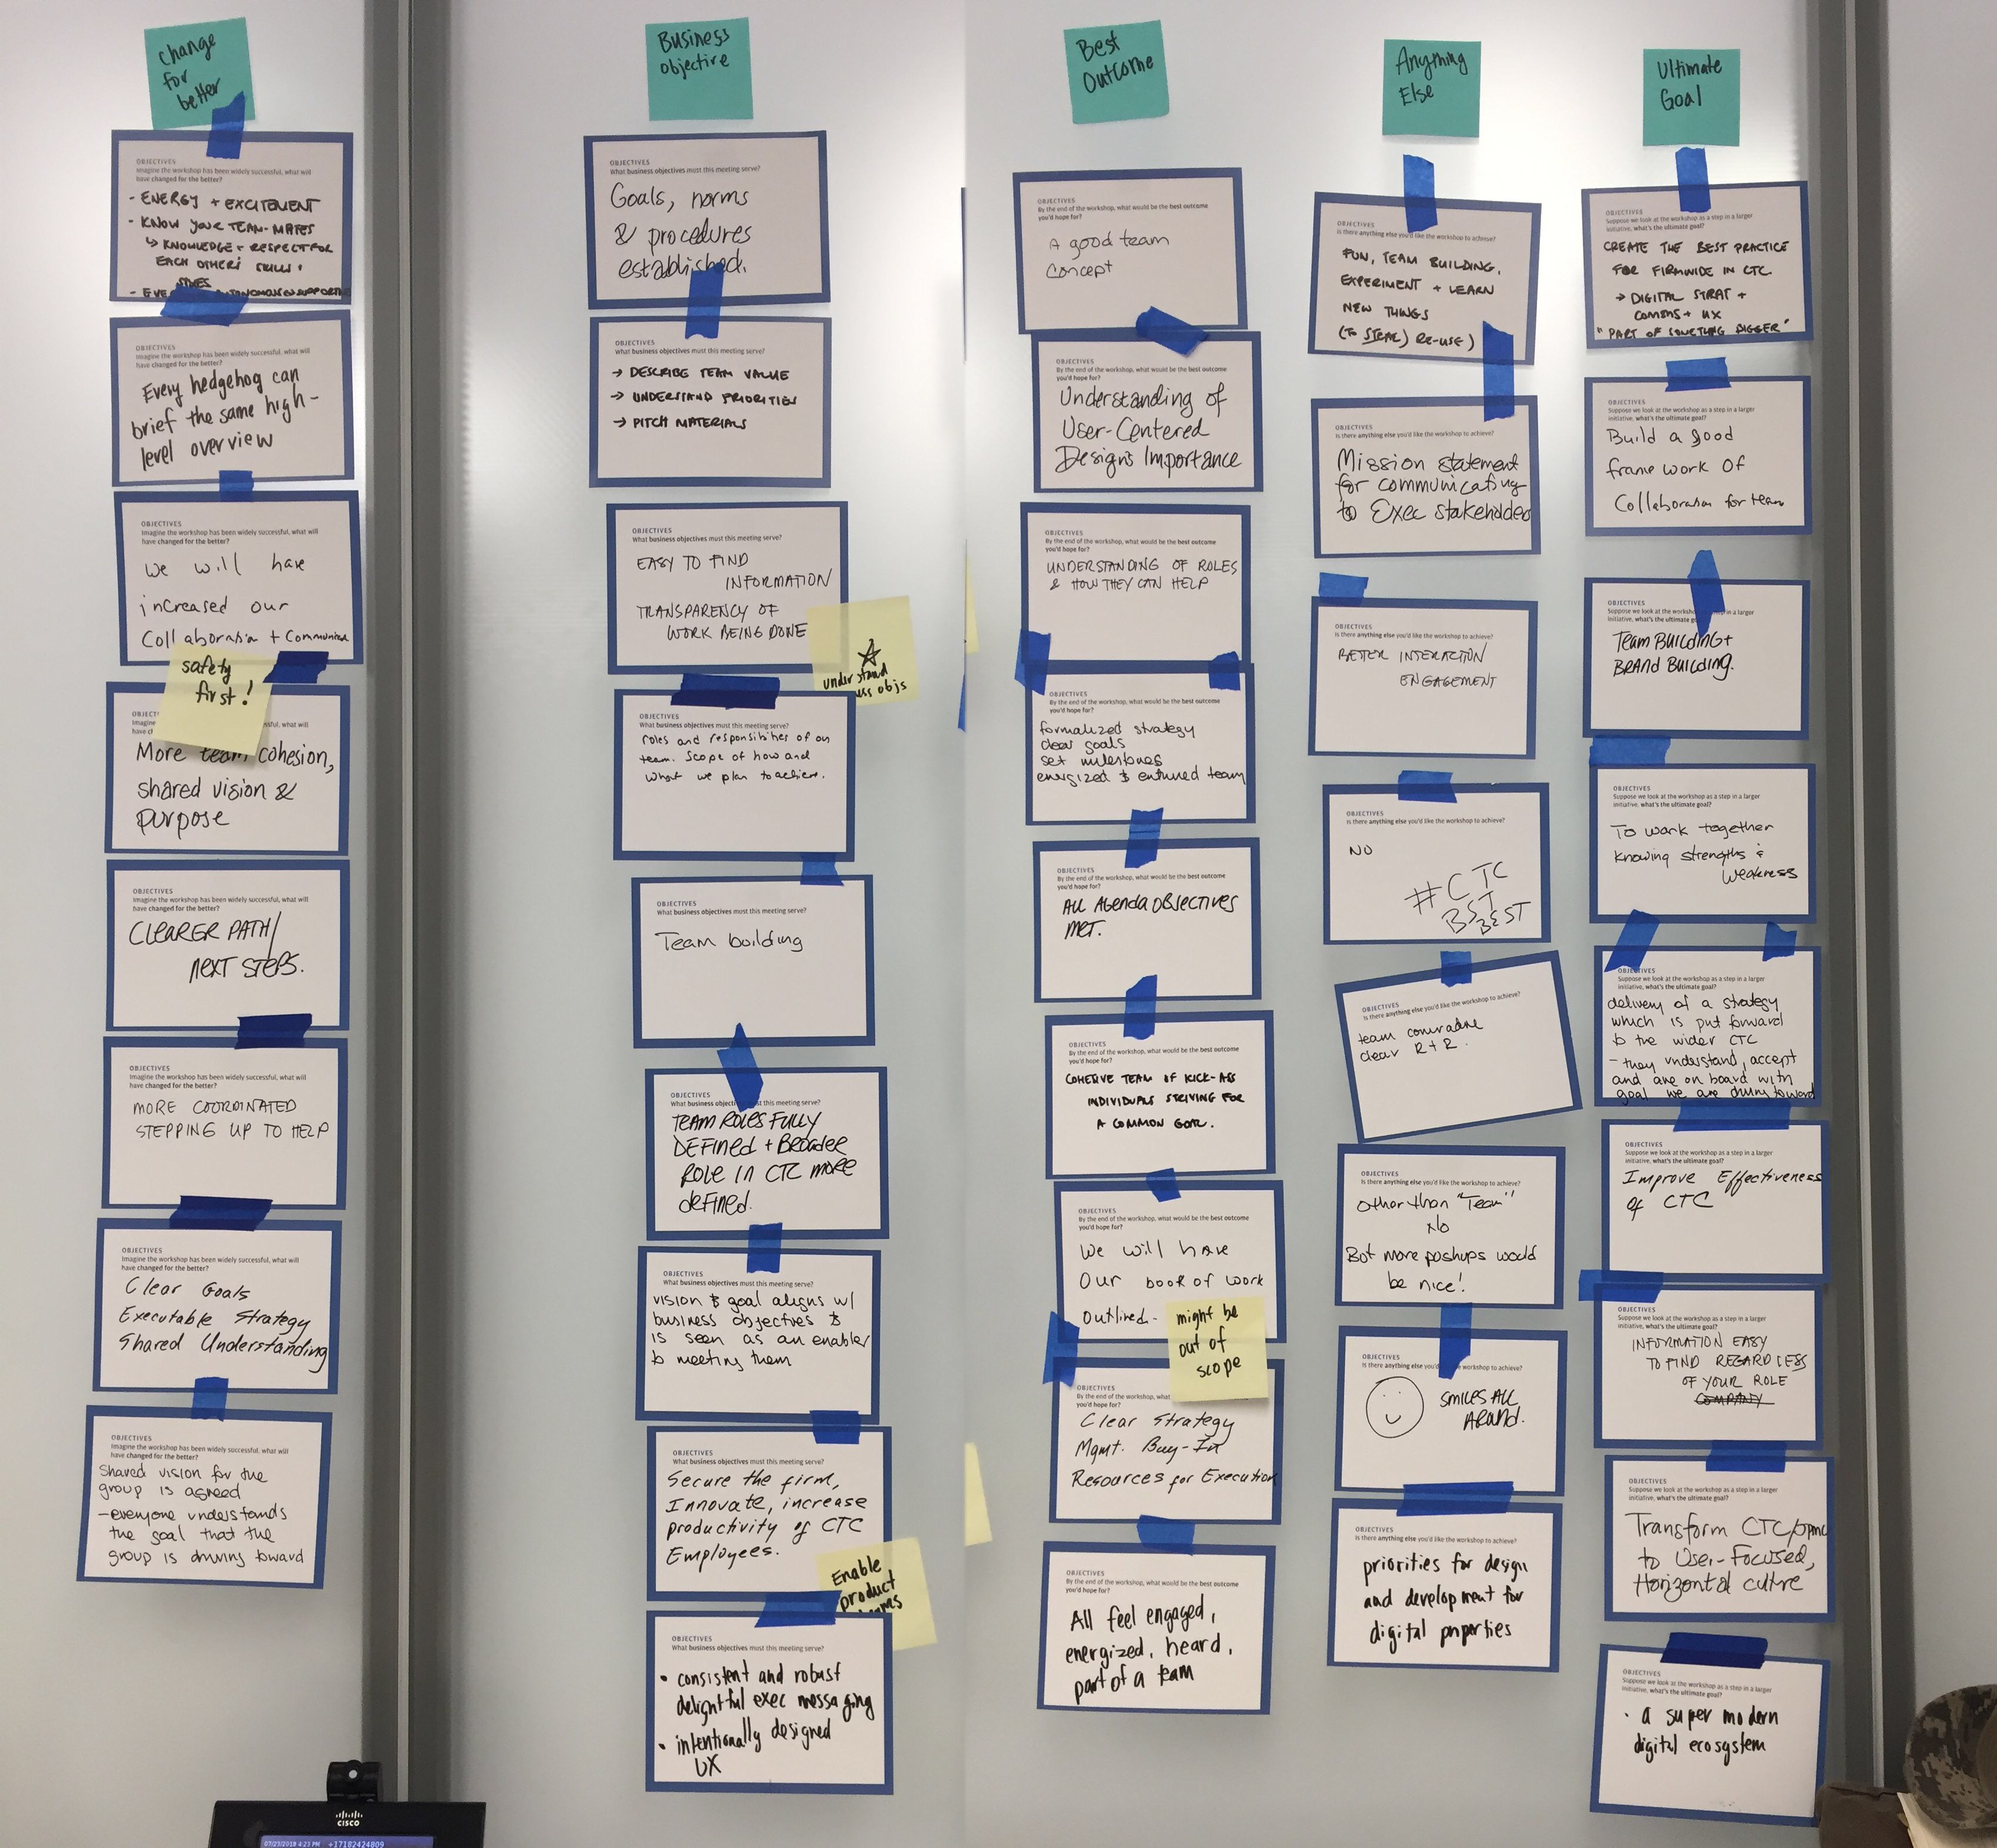 Change
for
better
OBJECTIVES
Imagine the workshop has been widely successful, what will
have changed for the better?
- ENERGY + EXCITEMENT
- KNOW YOUR TEAM-MATES
↳ KNOWLEDGE + RESPECT FOR
EACH OTHERS SKILLS +
OBJECTIVES
Imagine the workshop has been widely successful, what will
have changed for the better?
Every hedgehog can
brief the same high-
level overview
OBJECTIVES
Imagine the workshop has been widely successful, what will
have changed for the better?
we will have
increased our
Collaboration +
safety
first!
More team cohesion,
shared vision &
purpose
OBJECTIVES
Imagine the workshop has been widely successful, what will
have changed for the better?
CLEARER PATH/
NEXT STEPS.
OBJECTIVES
Imagine the workshop has been widely successful, what will
have changed for the better?
MORE COORDINATED
STEPPING UP TO HELP
OBJECTIVES
Imagine the workshop has been widely successful, what will
have changed for the better?
Clear Goals
Executable Strategy
Shared Understanding
OBJECTIVES
Imagine the workshop has been widely successful, what will
have changed for the better?
Shared vision for the
group is agreed
- everyone understands
the goal that the
group is driving toward
Business
Objective
OBJECTIVES
What business objectives must this meeting serve?
Goals, norms
& procedures
established.
OBJECTIVES
What business objectives must this meeting serve?
→ DESCRIBE TEAM VALUE
→ UNDERSTAND PRIORITIES
→ PITCH MATERIALS
OBJECTIVES
What business objectives must this meeting serve?
EASY TO FIND
INFORMATION
TRANSPARENCY OF
WORK BEING DONE
understand
objs
OBJECTIVES
What business objectives must this meeting serve?
roles and responsibilities of our
team. Scope of how and
what we plan to achieve.
OBJECTIVES
What business objectives must this meeting serve?
Team building
OBJECTIVES
What business this meeting serve?
TEAM ROLES FULLY
DEFINED + BROADER
ROLE IN CTC MORE
DEFINED.
OBJECTIVES
What business objectives must this meeting serve?
vision & goal aligns w/
business objectives &
is seen as an enabler
to meeting them
OBJECTIVES
What business objectives must this meeting serve?
Secure the firm,
Innovate, increase
productivity of CTC
Employees.
Enable
product
OBJECTIVES
What business objectives must this meeting serve?
• consistent and robust
delightful exec messaging
• intentionally designed
UX
Best
Outcome
OBJECTIVES
By the end of the workshop, what would be the best outcome
you'd hope for?
A good team
concept
OBJECTIVES
By the end of the workshop, what would be the best outcome
you'd hope for?
Understanding of
User-Centered
Design's Importance
OBJECTIVES
By the end of the workshop, what would be the best outcome
you'd hope for?
UNDERSTANDING OF ROLES
& HOW THEY CAN HELP
OBJECTIVES
By the end of the workshop, what would be the best outcome
you'd hope for?
formalized strategy
clear goals
set milestones
energized & enthused team
OBJECTIVES
By the end of the workshop, what would be the best outcome
you'd hope for?
All Agenda objectives
MET.
OBJECTIVES
By the end of the workshop, what would be the best outcome
you'd hope for?
COHESIVE TEAM OF KICK-ASS
INDIVIDUALS STRIVING FOR
A COMMON GOAL.
OBJECTIVES
By the end of the workshop, what would be the best outcome
you'd hope for?
We will have
Our book of work
outlined.
might be
out of
scope
OBJECTIVES
By the end of the workshop, what
you'd hope for?
Clear Strategy
Mgmt. Buy-In
Resources for Execution
OBJECTIVES
By the end of the workshop, what would be the best outcome
you'd hope for?
All feel engaged,
energized, heard,
part of a team
Anything
Else
OBJECTIVES
Is there anything else you'd like the workshop to achieve?
FUN, TEAM BUILDING,
EXPERIMENT + LEARN
NEW THINGS
(TO STEAL) RE-USE)
OBJECTIVES
Is there anything else you'd like the workshop to achieve?
Mission statement
for communicating
to Exec stakeholders
OBJECTIVES
Is there anything else you'd like the workshop to achieve?
BETTER INTERACTION
ENGAGEMENT
OBJECTIVES
Is there anything else you'd like the workshop to achieve?
NO
#CTC
BST
BEST
OBJECTIVES
Is there anything else you'd like the workshop to achieve?
team comradre
clear R+R.
OBJECTIVES
Is there anything else you'd like the workshop to achieve?
Other than "Team"
No
But more poshups would
be nice!
OBJECTIVES
Is there anything else workshop to achieve?
SMILES ALL
AROUND.
OBJECTIVES
Is there anything else you'd like the workshop to achieve?
priorities for design
and development for
digital properties
Ultimate
Goal
OBJECTIVES
Suppose we look at the workshop as a step in a larger
initiative, what's the ultimate goal?
CREATE THE BEST PRACTICE
FOR FIRMWIDE IN CTC
→ DIGITAL STRAT +
COMMS + UX
"PART OF SOMETHING BIGGER"
OBJECTIVES
Suppose we look at the workshop as a step in a larger
initiative, what's the ultimate goal?
Build a good
frame work of
Collaboration for team
OBJECTIVES
Suppose we look at the in a larger
initiative, what's the ultimate
TEAM BUILDING +
BRAND BUILDING.
OBJECTIVES
Suppose we look at the workshop as a step in a larger
initiative, what's the ultimate goal?
To work together
knowing strengths &
weakness
OBJECTIVES
Suppose we look at the workshop as a step in a larger
initiative, what's the ultimate goal?
delivery of a strategy
which is put forward
to the wider CTC
- they understand, accept
and are on board with
goal we are driving toward
OBJECTIVES
Suppose we look at the workshop as a step in a larger
initiative, what's the ultimate goal?
Improve Effectiveness
of CTC
OBJECTIVES
Suppose we look at the workshop as a step in a larger
initiative, what's the ultimate goal?
INFORMATION EASY
TO FIND REGARDLESS
OF YOUR ROLE
COMPANY
OBJECTIVES
Suppose we look at the workshop as a step in a larger
initiative, what's the ultimate goal?
Transform CTC/JPMC
to User-Focused,
Horizontal culture
OBJECTIVES
Suppose we look at the workshop as a step in a larger
initiative, what's the ultimate goal?
• a super modern
digital ecosystem
CISCO
07/23/2018 4:23 PM +17182424809